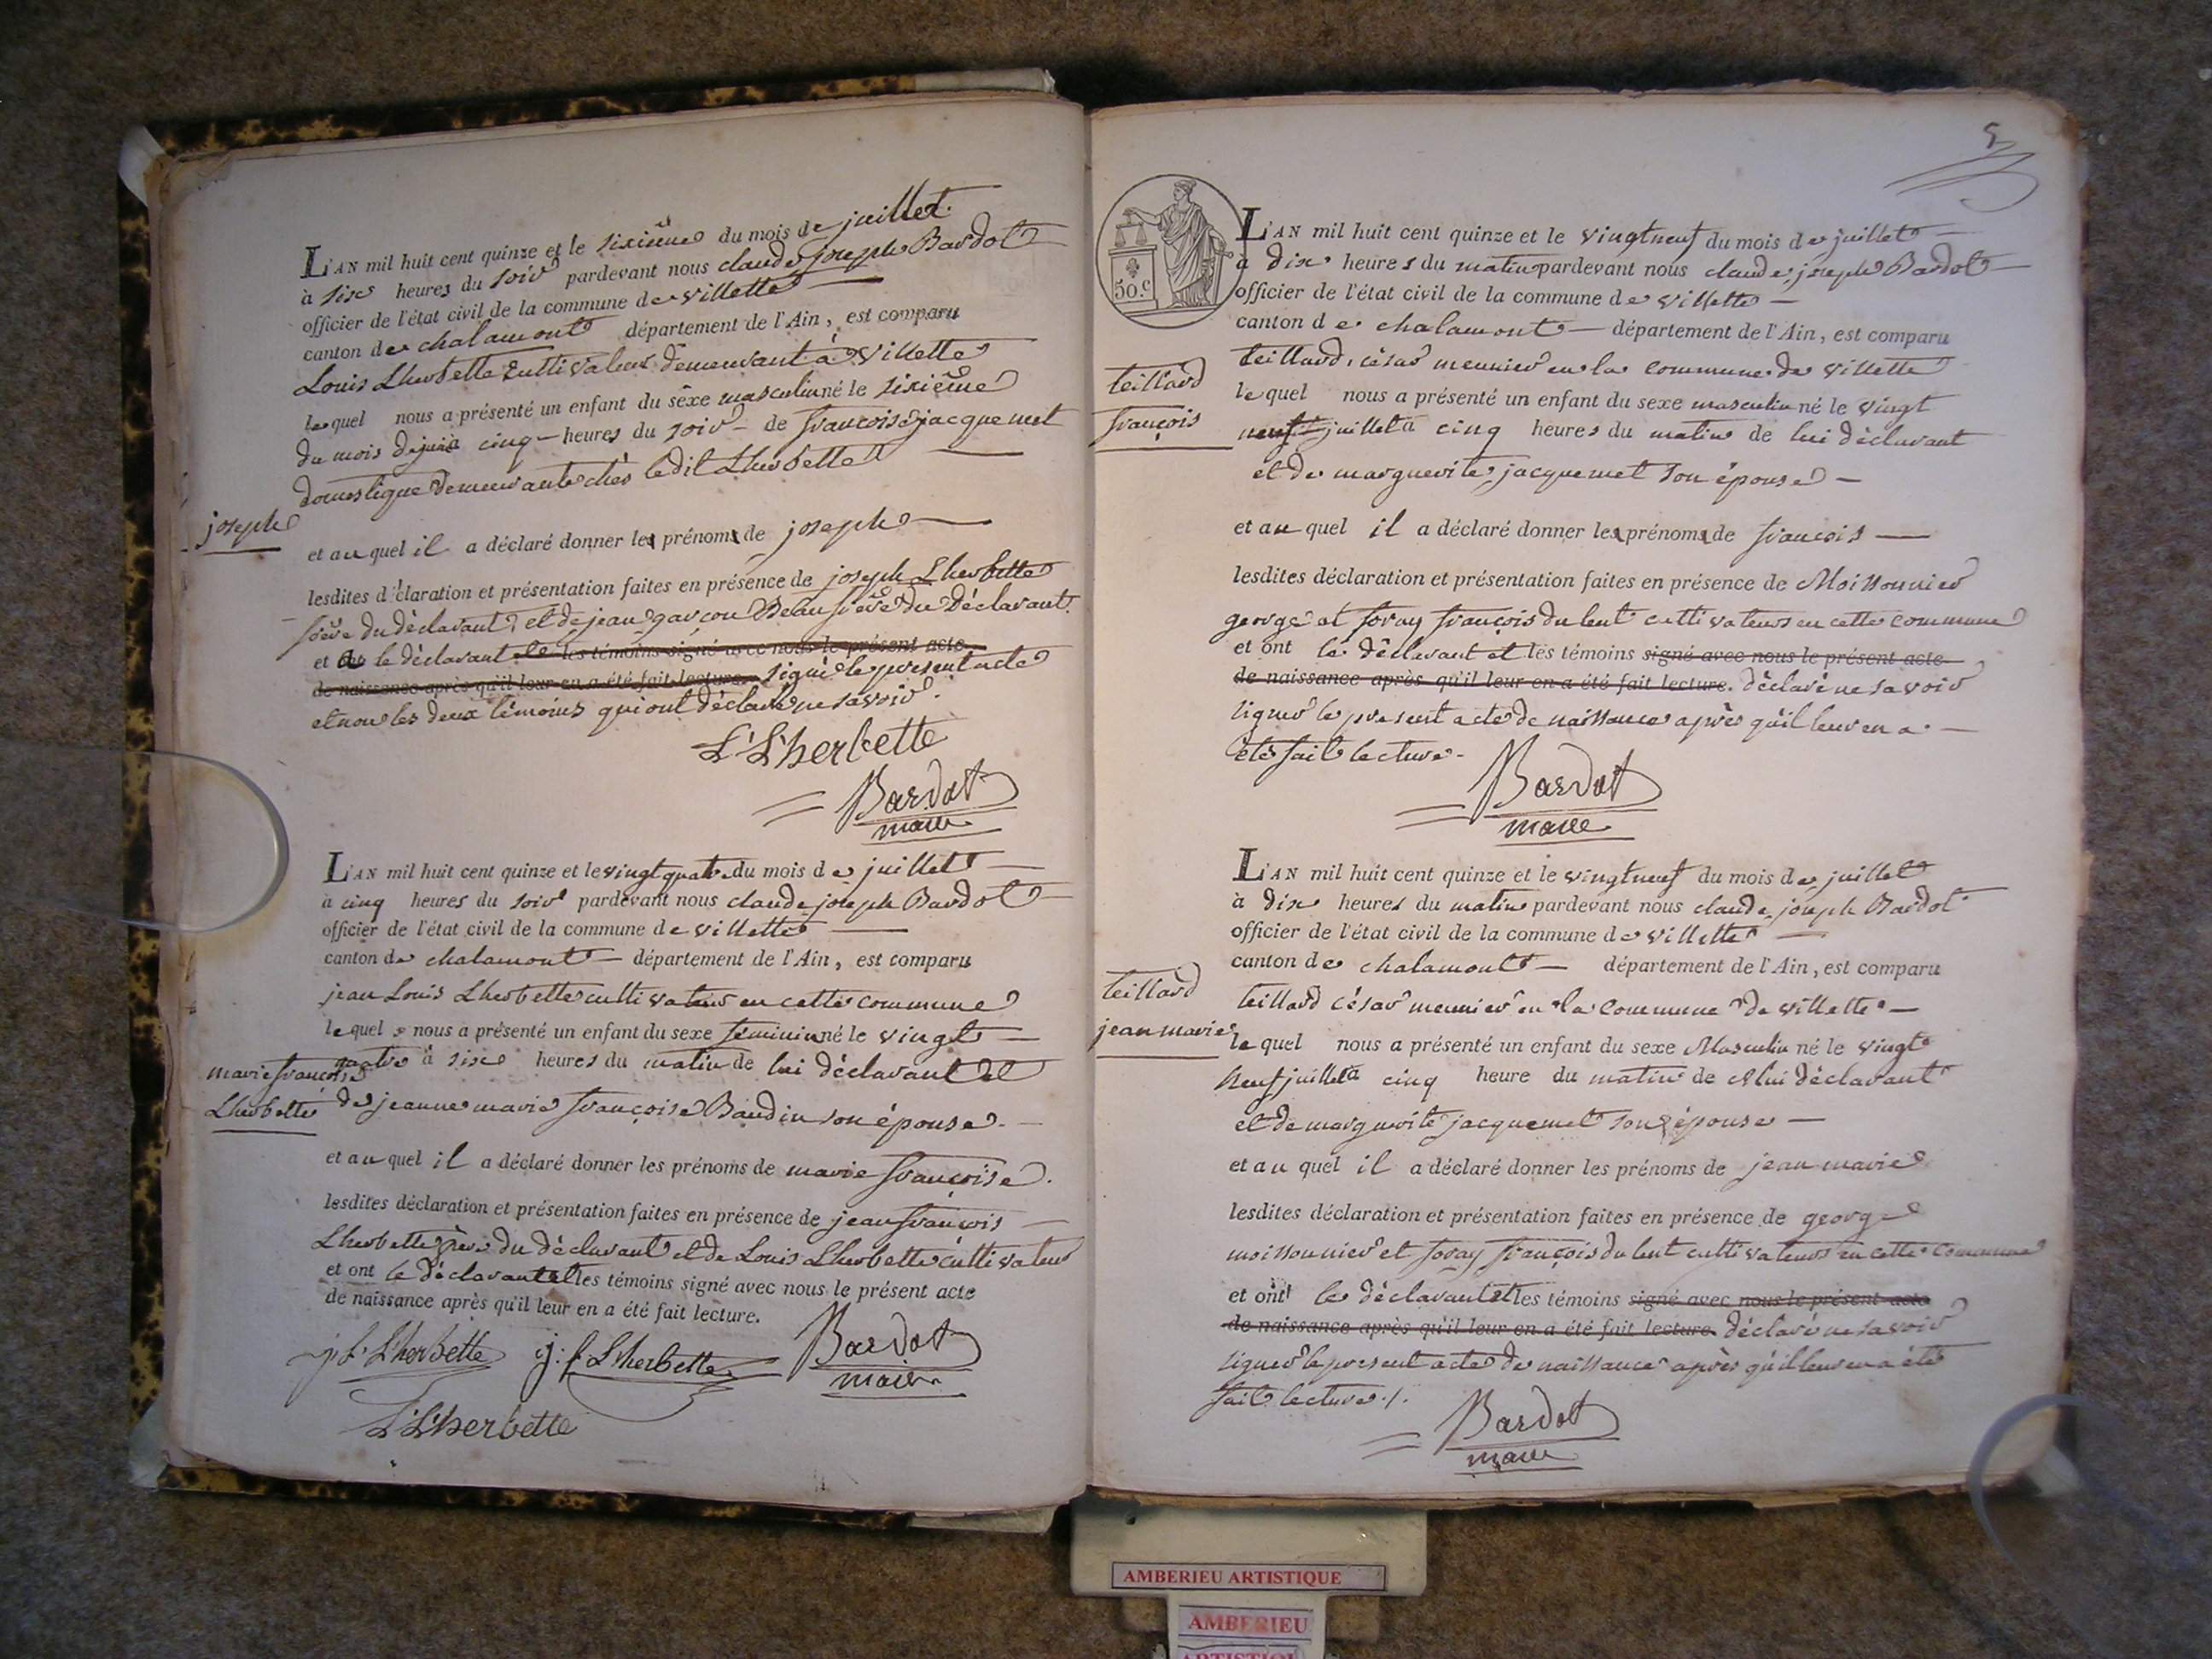 L'AN mil huit cent quinze et le sixième du mois de juillet.
à six heures du soir pardevant nous claude joseph Bardot
officier de l'état civil de la commune de villette
canton de chalamont département de l'Ain, est comparu
Louis Lherbette cultivateur demeurant à villette
lequel nous a présenté un enfant du sexe masculin né le sixième
du mois de à cinq heures du soir de françoise jacquemet
domestique demeurante chès ledit Lherbette
joseph
et au quel il a déclaré donner les prénoms de joseph
lesdites déclaration et présentation faites en présence de joseph Lherbette
frère du déclarant, et de jean garçon Beaufrère du Déclarant.
et le déclarant les témoins signé avec nous le présent acte
de naissance après qu'il leur en a été fait lecture. signé le present acte
et non les deux témoins qui ont déclaré ne savoir.
L Lherbette
Bardot
maire
L'AN mil huit cent quinze et le vingt quatre du mois de juillet
à cinq heures du soir pardevant nous claude joseph Bardot
officier de l'état civil de la commune de villette
canton de chalamont département de l'Ain, est comparu
jean Louis Lherbette cultivateur en cette commune
lequel nous a présenté un enfant du sexe féminin né le vingt
quatre à six heures du matin de lui déclarant et
marie françoise
Lherbette
de jeanne marie françoise Baudin son épouse.
et au quel il a déclaré donner les prénoms de marie françoise.
lesdites déclaration et présentation faites en présence de jean françois
Lherbette père du déclarant et de Louis Lherbette cultivateur
et ont le déclarant et les témoins signé avec nous le présent acte
de naissance après qu'il leur en a été fait lecture.
j L Lherbette j. f. Lherbette Bardot
maire
L Lherbette
5
50.c
L'AN mil huit cent quinze et le vingtneuf du mois de juillet
à dix heures du matin pardevant nous claude joseph Bardot
officier de l'état civil de la commune de villette
canton de chalamont département de l'Ain, est comparu
teillard césar meunier en la commune de villette
teillard
françois
lequel nous a présenté un enfant du sexe masculin né le vingt
neuf juillet à cinq heures du matin de lui déclarant
et de marguerite jacquemet son épouse
et au quel il a déclaré donner les prénoms de françois
lesdites déclaration et présentation faites en présence de Moissonnier
george et foray françois du lent cultivateurs en cette commune
et ont le déclarant et les témoins signé avec nous le présent acte
de naissance après qu'il leur en a été fait lecture. déclaré ne savoir
signer le present acte de naissance après qu'il leur en a
été fait lecture.
Bardot
maire
L'AN mil huit cent quinze et le vingtneuf du mois de juillet
à dix heures du matin pardevant nous claude joseph Bardot
officier de l'état civil de la commune de villette
canton de chalamont département de l'Ain, est comparu
teillard césar meunier en la commune de villette
teillard
jean marie
lequel nous a présenté un enfant du sexe Masculin né le vingt
neuf juillet à cinq heure du matin de lui déclarant
et de marguerite jacquemet son épouse
et au quel il a déclaré donner les prénoms de jean marie
lesdites déclaration et présentation faites en présence de george
moissonnier et foray françois du lent cultivateurs en cette commune
et ont le déclarant et les témoins signé avec nous le présent acte
de naissance après qu'il leur en a été fait lecture déclaré ne savoir
signer le present acte de naissance après qu'il leur en a été
fait lecture ./.
Bardot
maire
AMBERIEU ARTISTIQUE
AMBERIEU
ARTISTIQUE